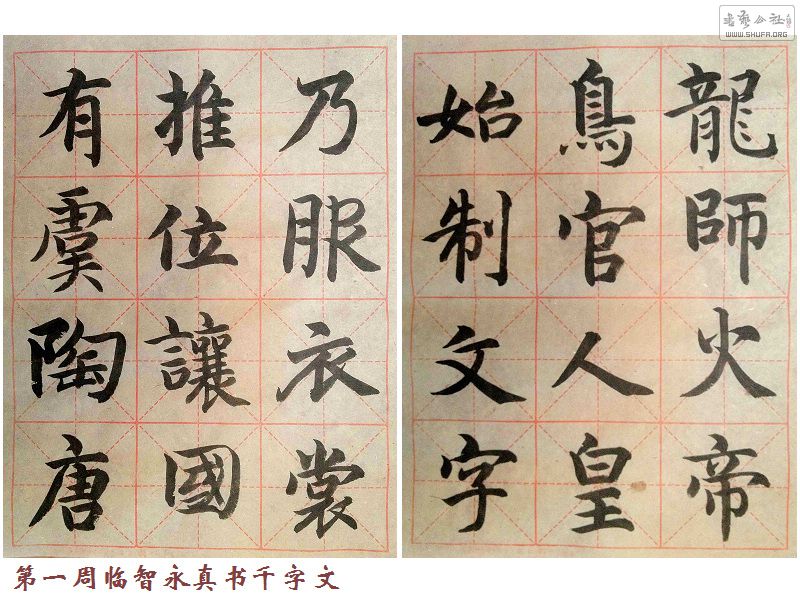 書藝公社
WWW.SHUFA.ORG
龍師火帝
鳥官人皇
始制文字
乃服衣裳
推位讓國
有虞陶唐
第一周临智永真书千字文